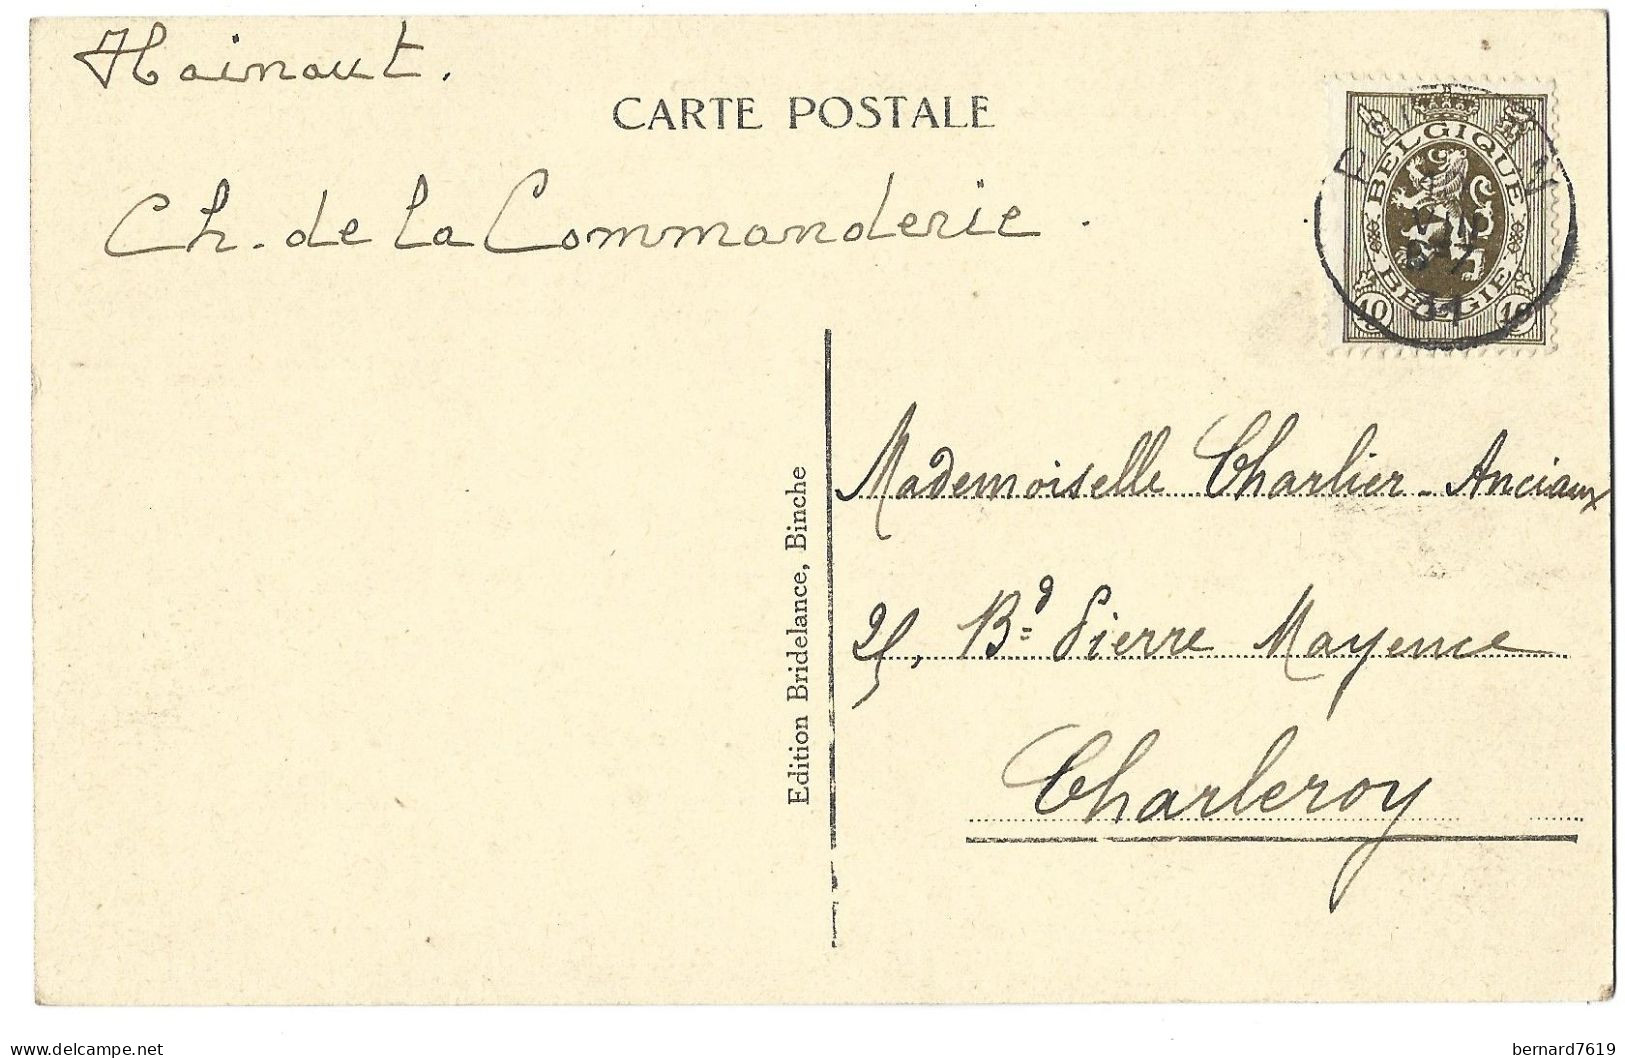 Hainaut.
CARTE POSTALE
Ch. de la Commanderie.
BELGIQUE
BELGIË
10 10
VIII
31
Mademoiselle Charlier - Anciaux
25, Bd Pierre Mayence
Charleroy
Edition Bridelance, Binche
delcampe.net
bernard7619